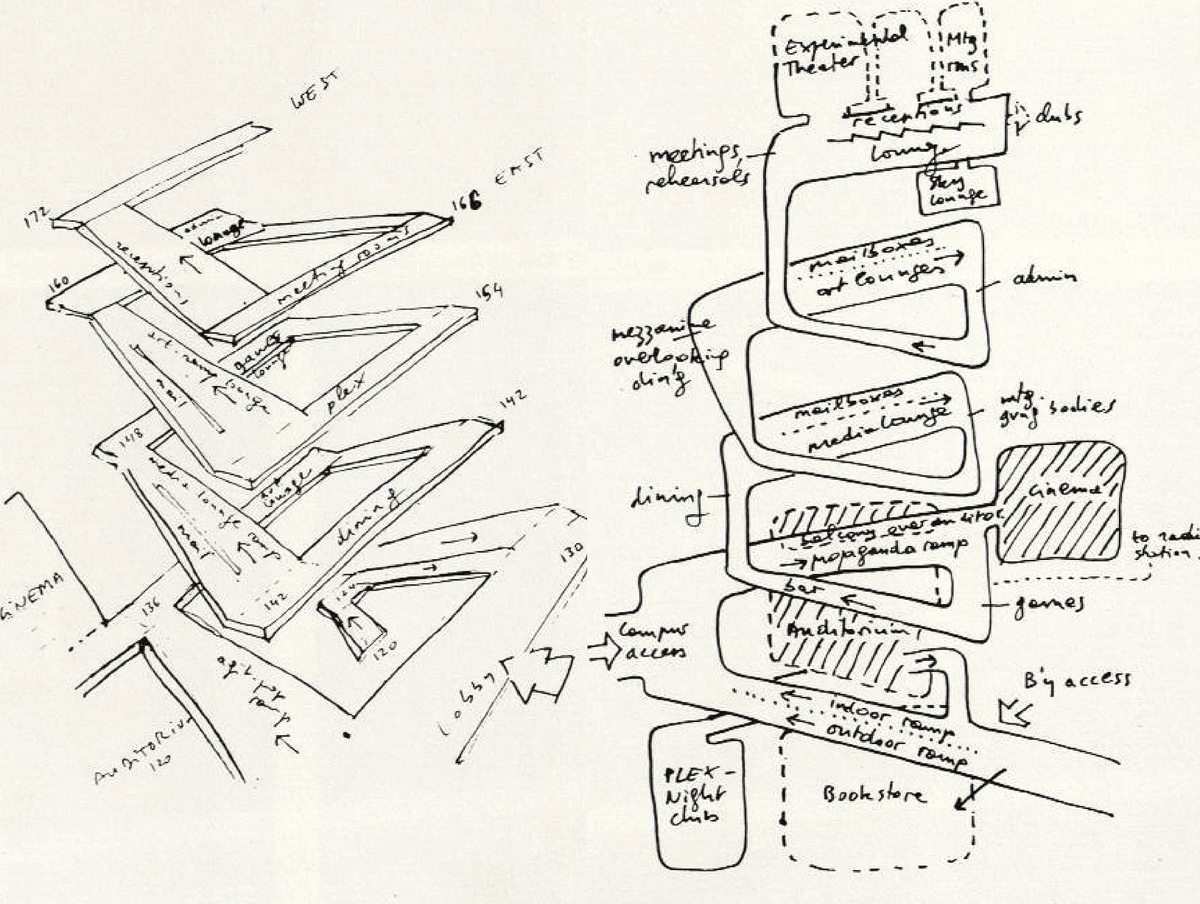 WEST
EAST
172
166
receptions
lounge
meeting rooms
160
154
games
lounge
lounge
mail
plex
148
142
media lounge
ramp
lounge
mail
dining
142
136
130
120
CINEMA
AUDITORIUM
120
Lobby
Experimental
Theater
Mtg
rms
receptions
clubs
lounge
meetings,
rehearsals
Sky
Lounge
mailboxes
art lounges
admin
mezzanine
overlooking
din'g
mailboxes
media lounge
mtg.
gvng bodies
dining
cinema
balcony over auditor.
propaganda ramp
to radio
station
bar
games
Campus
access
Auditorium
B'y access
indoor ramp
outdoor ramp
PLEX-
Night
club
Bookstore